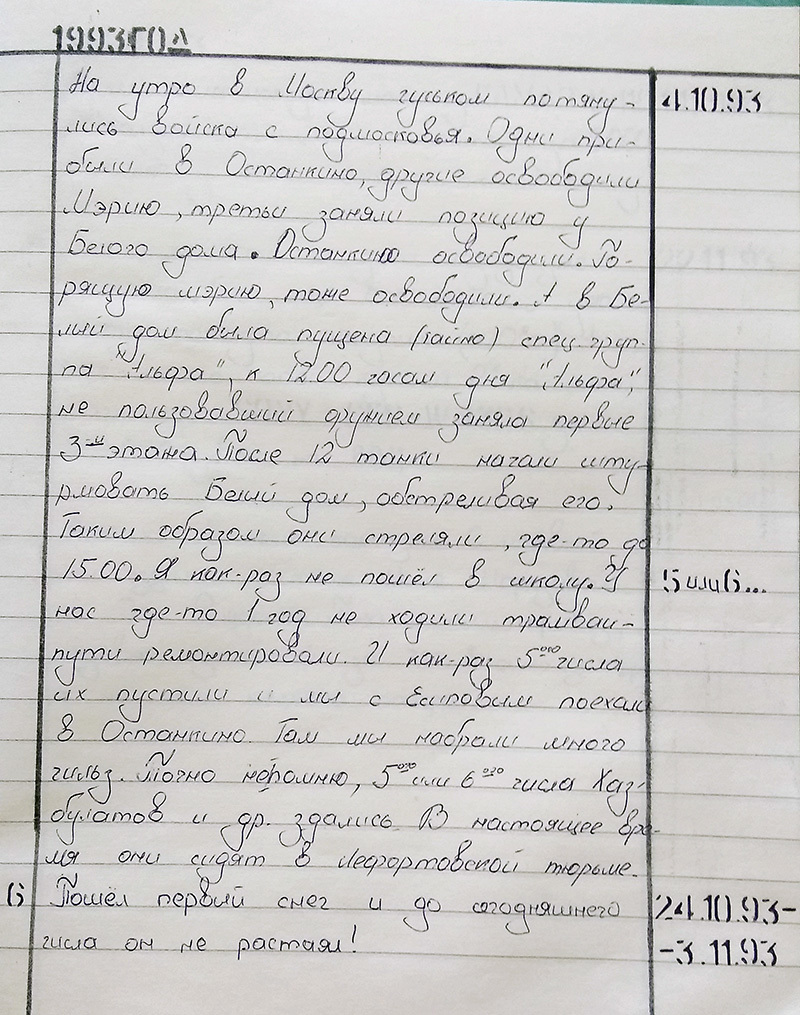 1993ГОД
На утро в Москву гуськом потяну- 4.10.93
лись войска с подмосковья. Одни при-
были в Останкино, другие освободили
Мэрию, третьи заняли позицию у
Белого дома. Останкино освободили. Го-
рящую мэрию, тоже освободили. А в Бе-
лый дом была пущена (тайно) спец. груп-
па "Альфа", к 12.00 часам дня "Альфа",
не пользовавший оружием заняла первые
3-и этажа. После 12 танки начали шту-
рмовать Белый дом, обстреливая его.
Таким образом они стреляли, где-то до
15.00. Я как-раз не пошёл в школу. У 5 или 6...
нас где-то 1 год не ходили трамваи-
пути ремонтировали. И как-раз 5ого числа
их пустили и мы с Есиповым поехали
в Останкино. Там мы набрали много
гильз. Точно непомню, 5ого или 6ого числа Хаз-
булатов и др. здались. В настоящее вре-
мя они сидят в Лефортовской тюрьме.
6 Пошёл первый снег и до сегодняшнего 24.10.93-
числа он не растаял! -3.11.93